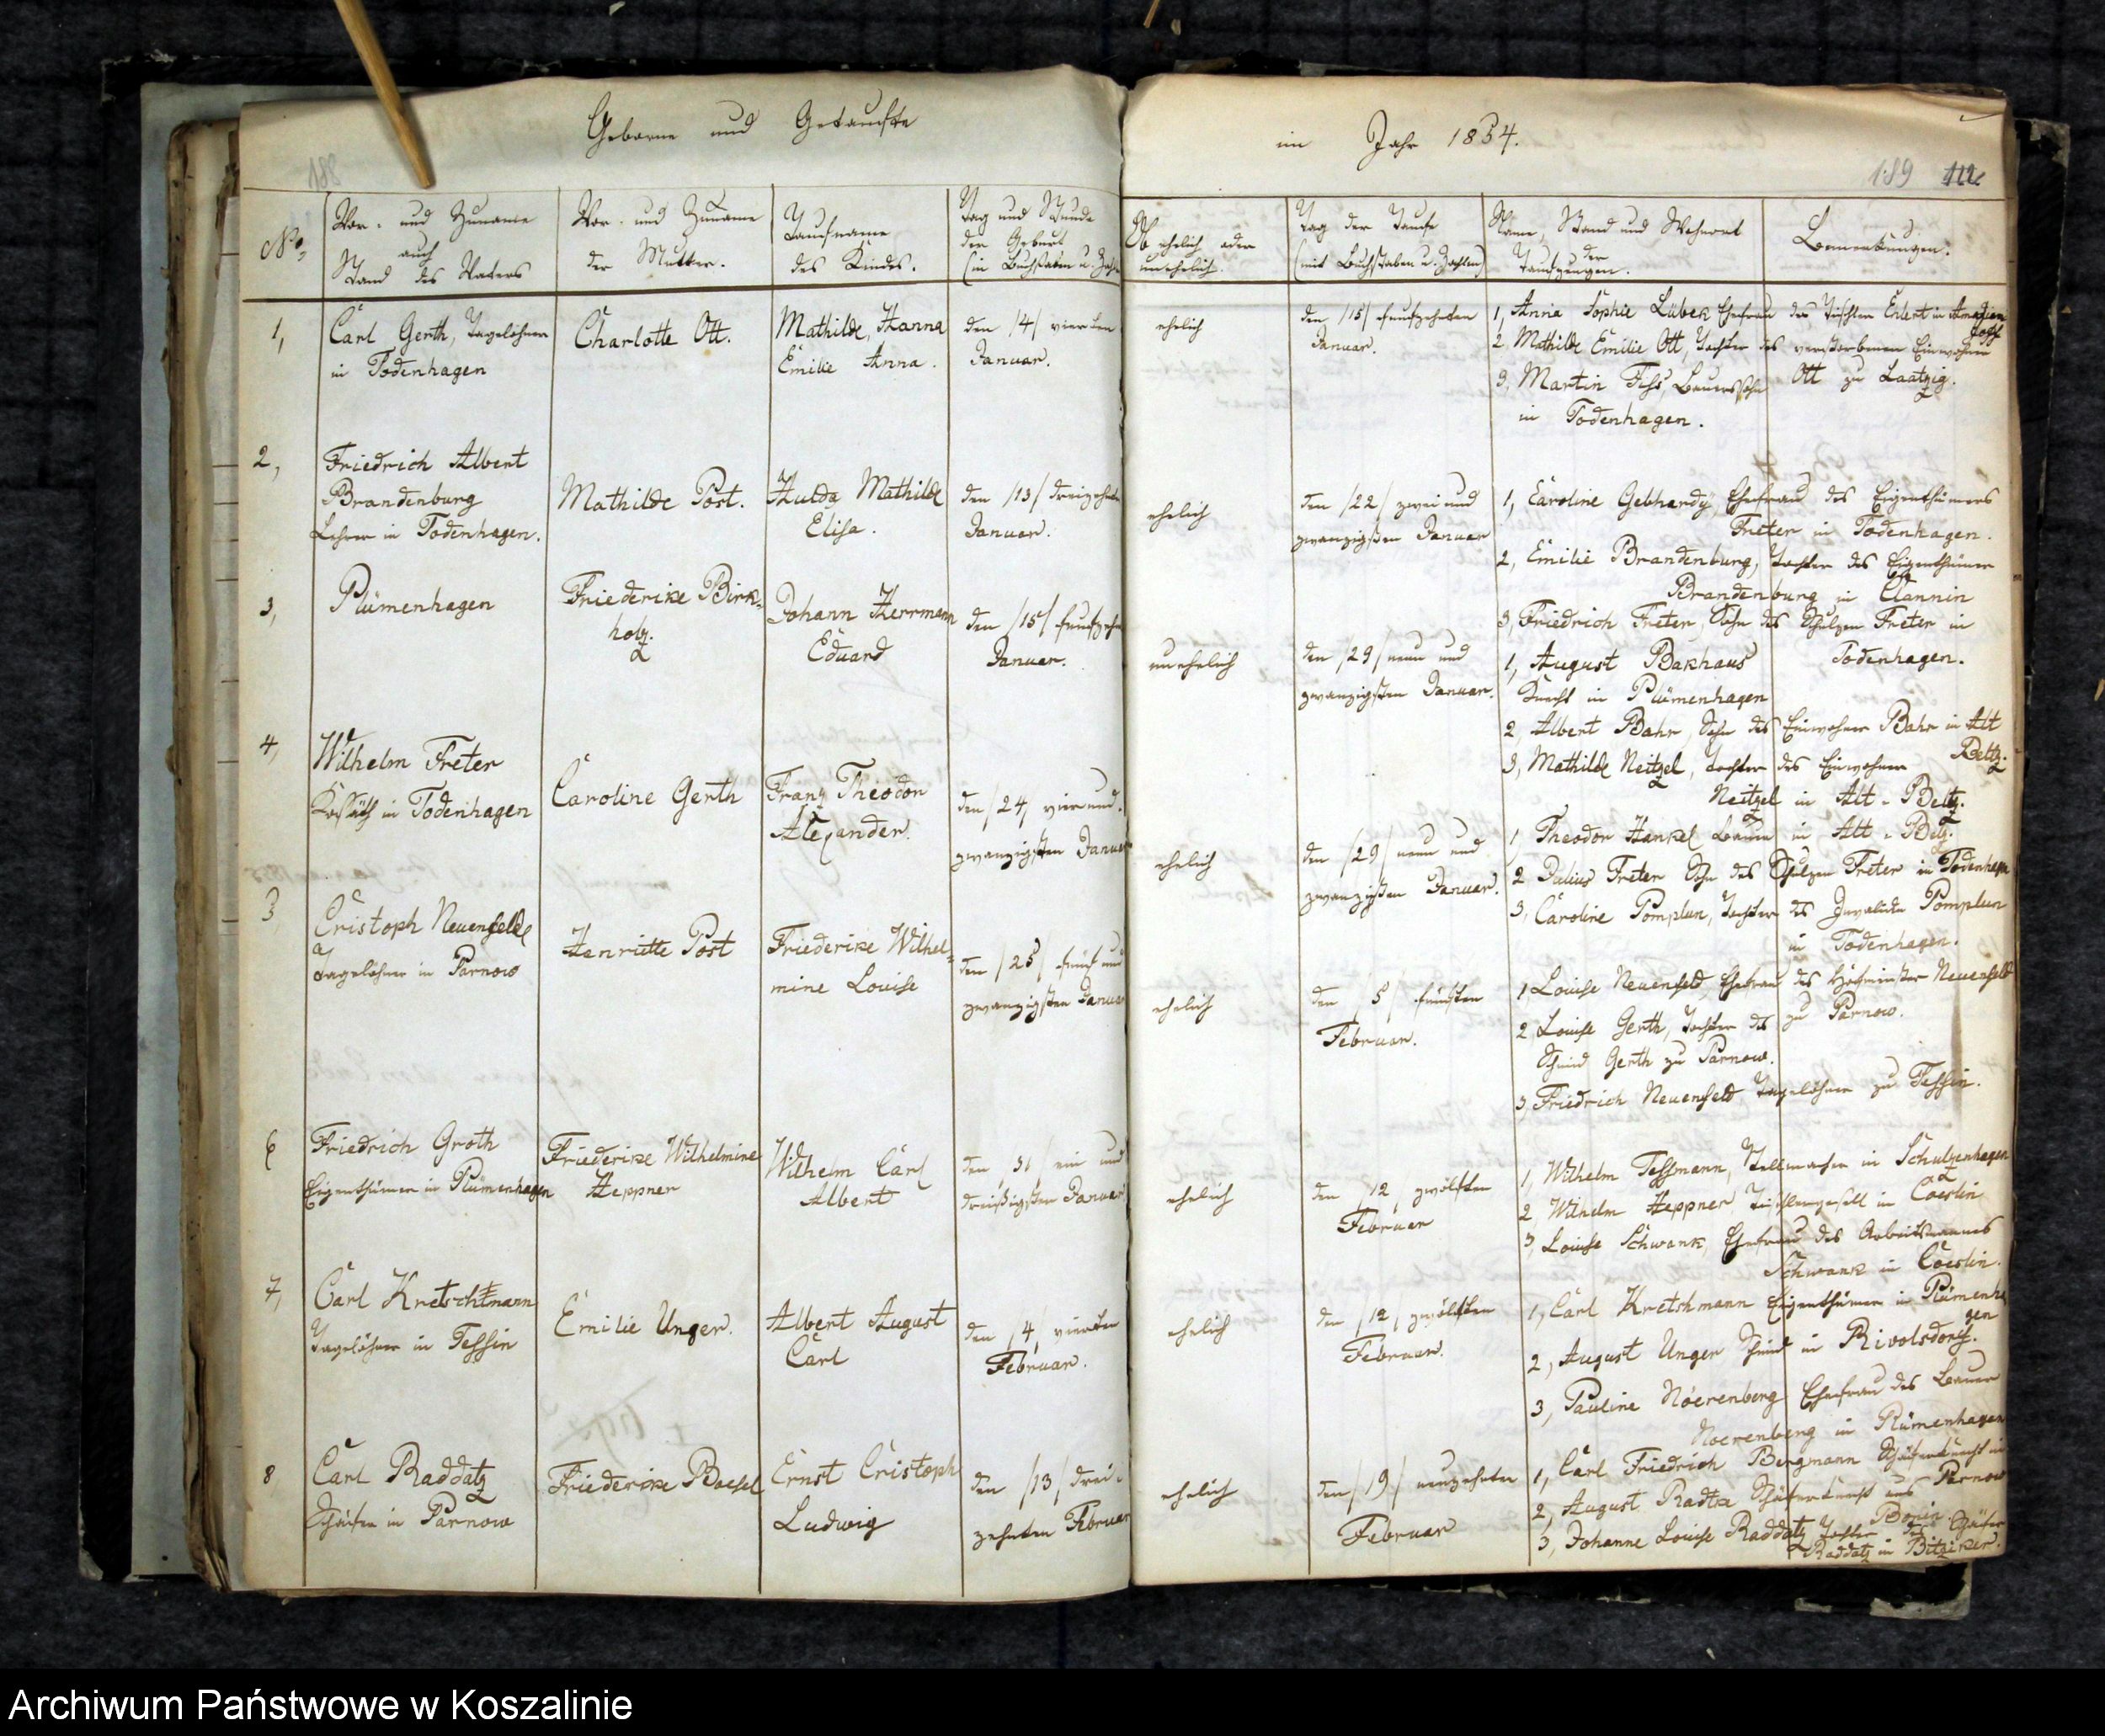 Geborne und Getaufte
188
No.
Vor- und Zuname
auch
Stand des Vaters
Vor- und Zuname
der Mutter.
Taufname
des Kindes.
Tag und Stunde
der Geburt
(in Buchstaben u. Zahlen
1,
Carl Gerth, Tagelöhner
in Todenhagen
Charlotte Ott.
Mathilde, Hanna
Emilie Anna.
den /4/ vierten
Januar.
2,
Friedrich Albert
Brandenburg
Lehrer in Todenhagen.
Mathilde Post.
Hulda Mathilde
Elisa.
den /13/ dreizehnten
Januar.
3,
Plümenhagen
Friederike Birk-
holz.
Johann Herrmann
Eduard
den /15/ funfzehn
Januar.
4,
Wilhelm Freter
Kossäth in Todenhagen
Caroline Gerth
Franz Theodor
Alexander.
den /24/ vierund-
zwanzigsten Januar
Cristoph Neuenfeld
Tagelöhner in Parnow
Henriette Post
Friederike Wilhel-
mine Louise
den /25/ fünf und
zwanzigsten Januar
6
Friedrich Groth
Eigenthümer in Plümenhagen
Friederike Wilhelmine
Heppner
Wilhelm Carl
Albert
den /31/ ein und
dreißigsten Januar
7,
Carl Kretschmann
Tagelöhner in Tessin
Emilie Unger.
Albert August
Carl
den /4/ vierten
Februar.
8
Carl Raddatz
Schäfer in Parnow
Friederike Boesel
Ernst Cristoph
Ludwig
den /13/ drei-
zehnten Februar
im Jahr 1854.
189
Ob ehelich oder
unehelich.
Tag der Taufe
(mit Buchstaben u. Zahlen)
Name, Stand und Wohnort
der
Taufzeugen.
Bemerkungen.
ehelich
den /15/ funfzehnten
Januar.
1, Anna Sophie Lübek Ehefrau des Tischler Ehlert in
2. Mathilde Emilie Ott, Tochter des verstorbenen Einwohner
3, Martin Fess, Bauerssohn Ott zu Laatzig.
in Todenhagen.
ehelich
den /22/ zwei und
zwanzigsten Januar
1, Caroline Gebhardy, Ehefrau des Eigenthümers
Freter in Todenhagen.
2, Emilie Brandenburg, Tochter des Eigenthümer
Brandenburg in Clannin
3, Friedrich Freter, Sohn des Schulzen Freter in
Todenhagen.
unehelich
den /29/ neun und
zwanzigsten Januar.
1, August Bakhaus
Knecht in Plümenhagen
2, Albert Bahr, Sohn des Einwohner Bahr in Alt
Beltz.
3, Mathilde Neitzel, Tochter des Einwohner
Neitzel in Alt-Beltz.
ehelich
den /29/ neun und
zwanzigsten Januar.
1, Theodor Henkel Bauer in Alt-Belz.
2 Julius Freter Sohn des Schulzen Freter in Todenhagen
3, Caroline Pomplun, Tochter des Invalide Pomplun
in Todenhagen.
ehelich
den /5/ fünften
Februar.
1 Louise Neuenfeld, Ehefrau des Hofmeister Neuenfeld
zu Parnow.
2 Louise Gerth, Tochter des
Schmid Gerth zu Parnow.
3, Friedrich Neuenfeld Tagelöhner zu Tessin.
ehelich
den /12/ zwölften
Februar
1, Wilhelm Tessmann, Stellmacher in Schulzenhagen
2, Wilhelm Heppner Tischlergesell in Coeslin
3, Louise Schwank, Ehefrau des Arbeitsmannes
Schwank in Coeslin.
ehelich
den /12/ zwölften
Februar.
1, Carl Kretshmann Eigenthümer in Plümenha
gen
2, August Unger Schmid in Rivolsdorf.
3, Pauline Noerenberg Ehefrau des Bauer
Noerenberg in Plümenhagen
ehelich
den /19/ neunzehnten
Februar
1, Carl Friedrich Bergmann Schäferknecht in
Parnow
2, August Radtke Schäferknecht aus
Bonin.
3, Johanne Louise Raddatz, Tochter des Schäfer
Raddatz in Bitziker.
Archiwum Państwowe w Koszalinie